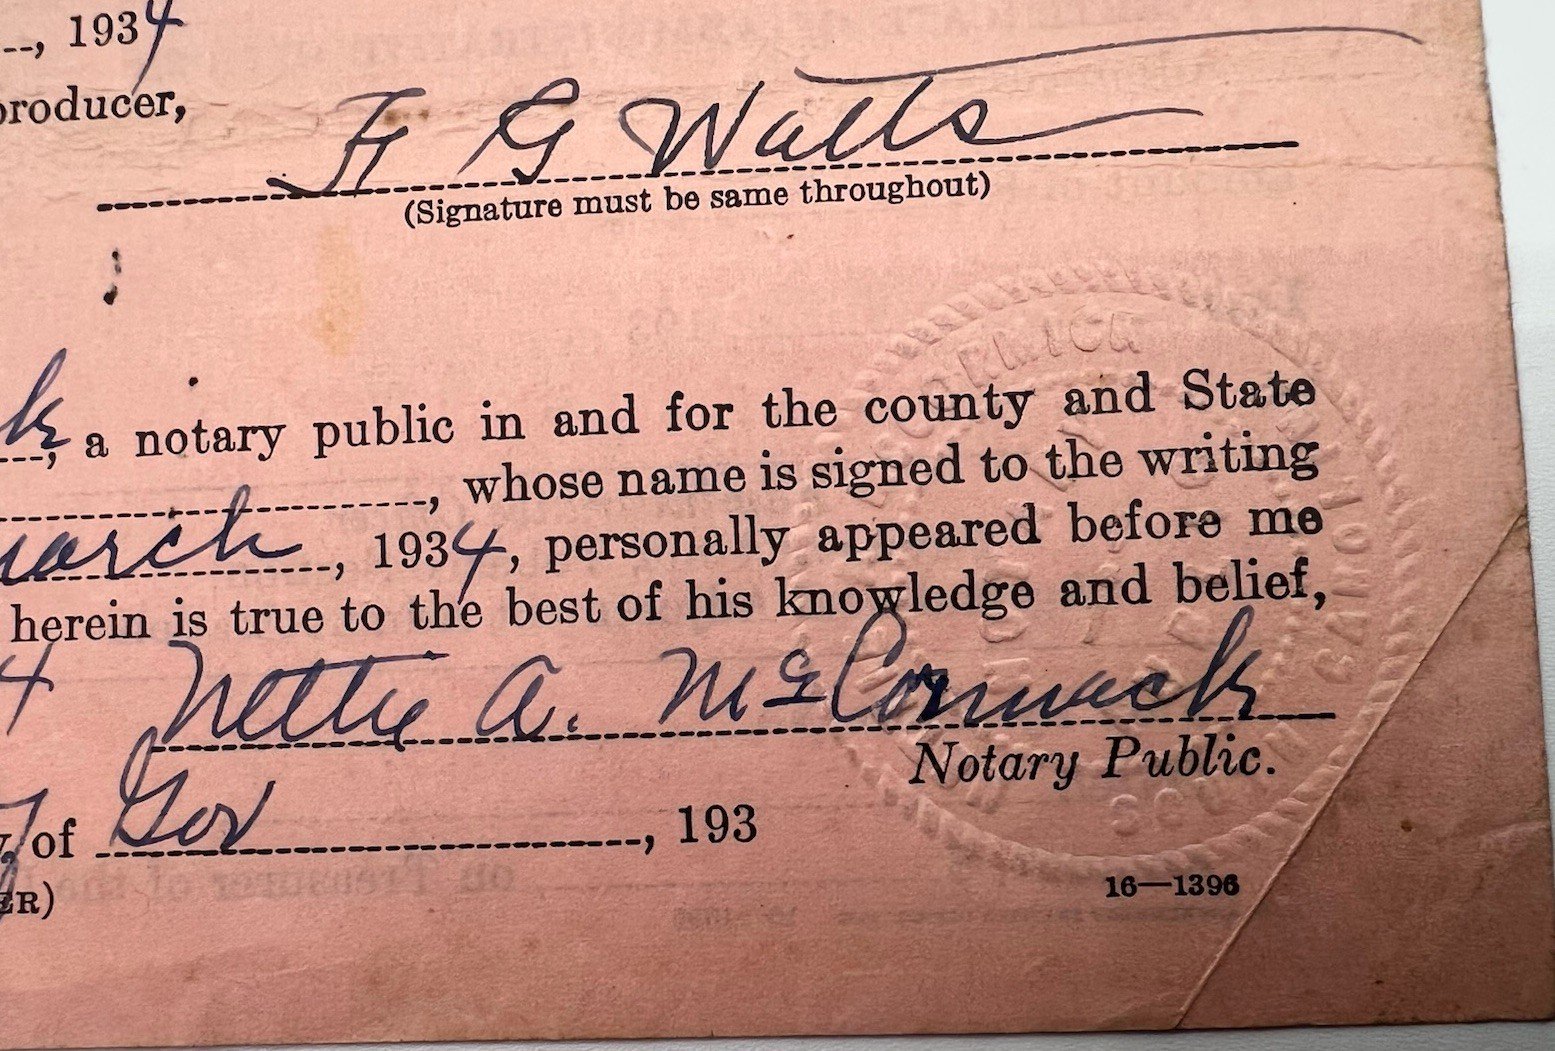 , 1934
producer,
H G Watts
(Signature must be same throughout)
k, a notary public in and for the county and State
, whose name is signed to the writing
march, 1934, personally appeared before me
herein is true to the best of his knowledge and belief,
4 Nettie A. McCormack
Notary Public.
of Nov, 193
ER)
16—1396